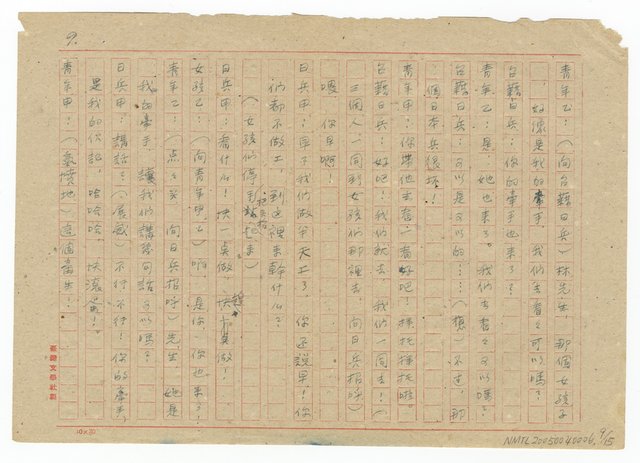 9.
青年乙:(向台籍日兵)林先生,那個女孩子
好像是我的牽手,我們去看々可以嗎?
台籍日兵:你的牽手也來了?
青年乙:是,她也來了。我們去看々可以嗎?
台籍日兵:可以是可以的……(想)不过,那
個日本兵很坏!
青年甲:你帶他去看一看好吧!拜托拜托啦。
台籍日兵:好吧!我們就去,我們一同去!(
三個人一同到女孩們那裡去,向日兵招呼)
喂,你早啊!
日兵甲:早?我們做半天工了,你还說早!你
們都不做工,到这裡來幹什么?
(女孩們停手站起來)
日兵甲:看什么!快一矣做!快一矣做!
女孩乙:(向青年乙)啊,是你,你也來了!
青年乙:(点々头,向日兵招呼)先生,她是
我的牽手,讓我們講幾句話可以嗎?
日兵甲:講話?(展威)不行不行!你的牽手,
是我的  ,哈哈哈,快滾蛋!
青年甲:(氣憤地)這個畜生!
臺灣文學社製
10×20
NMTL20050040006, 9/15